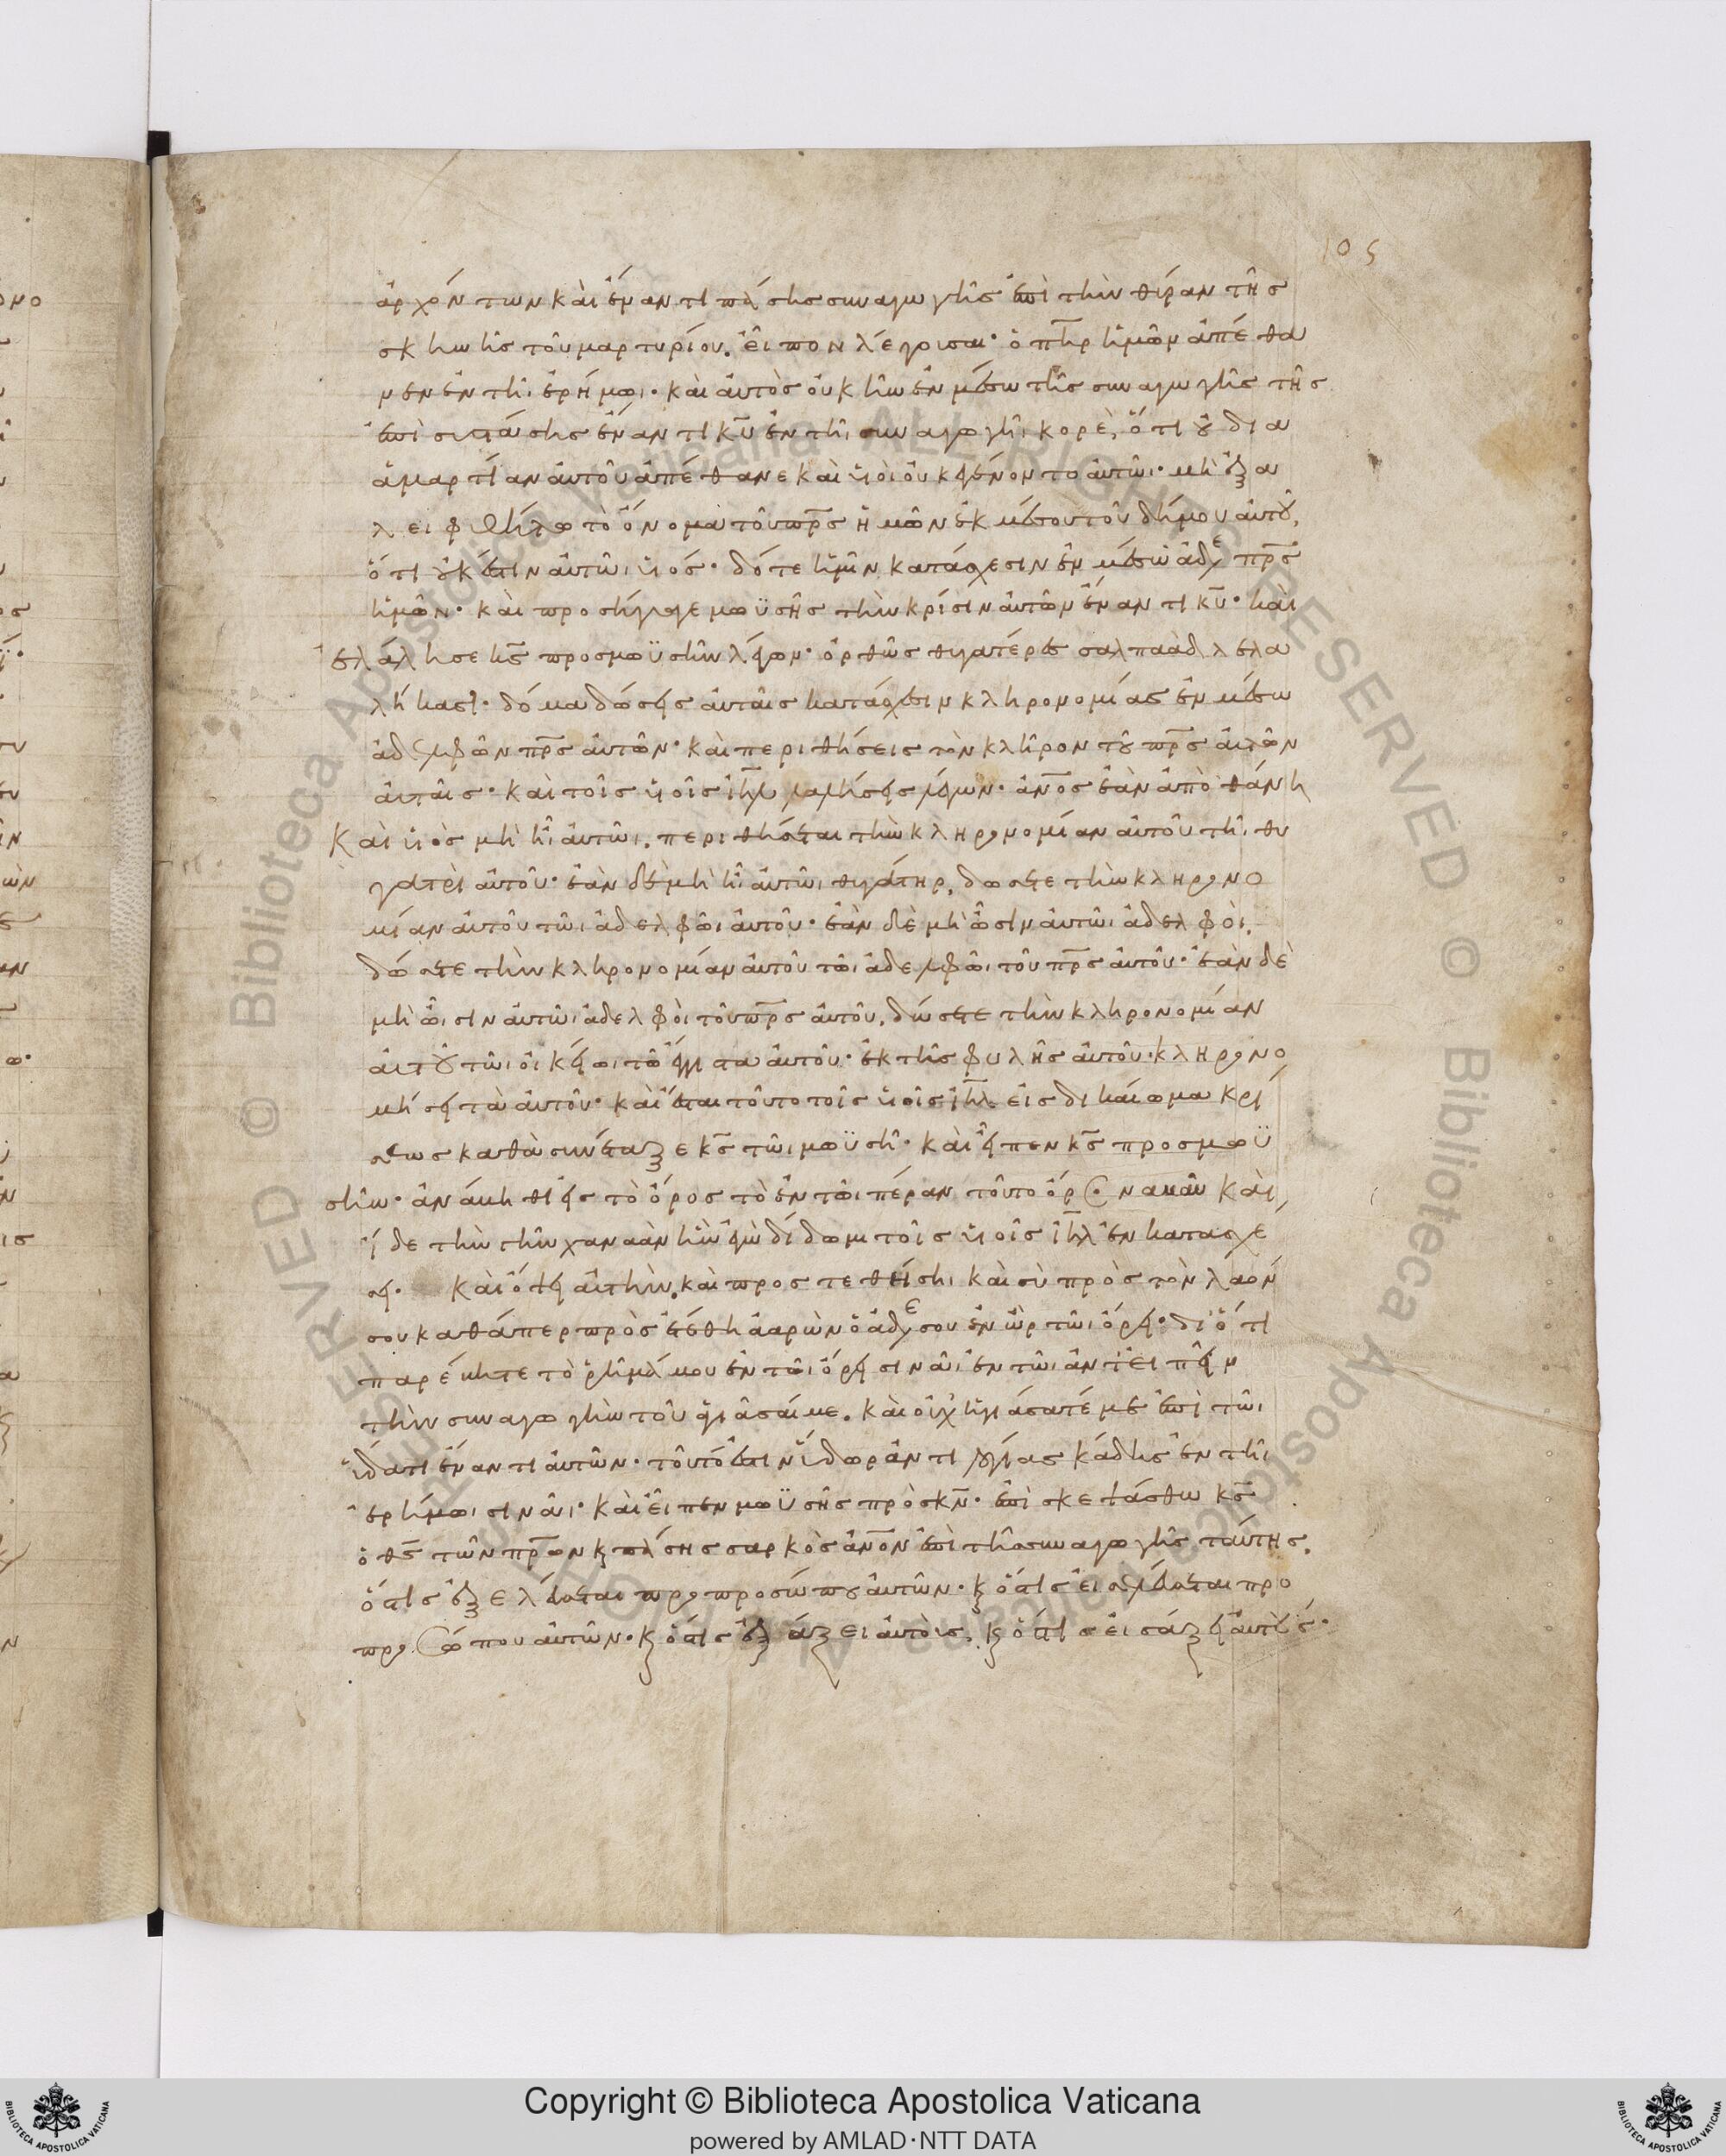 105
ἀρχόντων καὶ ἔναντι πάσης συναγωγῆς ἐπὶ τὴν θύραν τῆς
σκηνῆς τοῦ μαρτυρίου. εἶπον λέγουσαι· ὁ πηρ ἡμῶν ἀπέθα
νεν ἐν τῆι ἐρήμωι· καὶ αὐτὸς οὐκ ἦν ἐν μέσω τῆς συναγωγῆς τῆς
ἐπισυστάσης ἔναντι κυ ἐν τῆι συναγωγῆι κορὲ, ὅτι οὐ δια
ἁμαρτίαν αὐτοῦ ἀπέθανε καὶ υἱοὶ οὐκ ἐγένοντο αὐτῶι· μὴ ἐξα
λειφθήτω τὸ ὄνομα τοῦ πρς ἡμῶν ἐκ μέσου τοῦ δήμου αὐτοῦ,
ὅτι οὐκ ἔστιν αὐτῶι υἱός· δότε ἡμῖν κατάσχεσιν ἐν μέσω ἀδε πρς
ἡμῶν· καὶ προσήγαγε μωϋσῆς τὴν κρίσιν αὐτῶν ἔναντι κυ· καὶ
ἐλάλησε κς προς μωϋσῆν λέγων· ὀρθῶς θυγατέρες σαλπαὰδ λελα
λήκασι· δόμα δώσεις αὐταῖς κατάσχεσιν κληρονομίας ἐν μέσω
ἀδελφῶν πρς αὐτῶν· καὶ περιθήσεις τὸν κλῆρον τοῦ πρς αὐτῶν
αὐταῖς· καὶ τοῖς υἱοῖς ιηλ λαλήσεις λέγων· ἀνος ἐὰν ἀποθάνη
καὶ υἱὸς μὴ ἦι αὐτῶι. περιθήσεται τὴν κληρονομίαν αὐτοῦ τῆι θυ
γατρὶ αὐτοῦ· ἐὰν δὲ μὴ ἦι αὐτῶι θυγάτηρ, δώσετε τὴν κληρονο
μίαν αὐτοῦ τῶι ἀδελφῶι αὐτοῦ· ἐὰν δὲ μὴ ὦσιν αὐτῶι ἀδελφοὶ.
δώσετε τὴν κληρονομίαν αὐτοῦ τῶι ἀδελφῶι τοῦ πρς αὐτοῦ· ἐὰν δὲ
μὴ ὦισιν αὐτῶι ἀδελφοὶ τοῦ πρς αὐτοῦ. δώσετε τὴν κληρονομίαν
αὐτοῦ τῶι οἰκείωι τῶ ἔγγιστα αὐτοῦ· ἐκ τῆς φυλῆς αὐτοῦ· κληρονο
μήσει τὰ αὐτοῦ· καὶ ἔσται τοῦτο τοῖς υἱοῖς ιηλ εἰς δικαίωμα κρί
σεως καθὰ συνέταξε κς τῶι μωϋσῆ· καὶ εἶπεν κς προς μωϋ
σῆν· ἀνάβηθι εἰς τὸ ὄρος τὸ ἐν τῶι πέραν τοῦτο ὄρος ναβαῦ καὶ
ἴδε τὴν γῆν χαναὰν ἣν ἐγὼ δίδωμι τοῖς υἱοῖς ιηλ ἐν κατασχέ
σει· καὶ ὄψει αὐτὴν. καὶ προστεθήση καὶ σὺ πρὸς τὸν λαόν
σου καθάπερ προσετέθη ἀαρὼν ὁ ἀδε σου ἐν ὢρ τῶι ὄρει· διότι
παρέβητε τὸ ῥῆμά μου ἐν τῶι ὄρει σινᾶι ἐν τῶι ἀντιπίπτειν
τὴν συναγωγὴν τοῦ ἁγιᾶσαί με. καὶ οὐχ ἡγιάσατέ με ἐπὶ τῶι
ὕδατι ἔναντι αὐτῶν· τοῦτό ἐστιν ὕδωρ ἀντιλογίας κάδης ἐν τῆι
ἐρήμωι σινᾶι· καὶ εἶπεν μωϋσῆς πρὸς κν· ἐπισκεψάσθω κς
ὁ θς τῶν πρων κ πάσης σαρκὸς ἀνον ἐπὶ τῆς συναγωγῆς ταύτης.
ὅστις ἐξελεύσεται προ προσώπου αὐτῶν· κ ὅστις εἰσελεύσεται προ
προσώπου αὐτῶν· κ ὅστις ἐξάξει αὐτοὺς. κ ὅστις εἰσάξει αὐτούς·
Copyright © Biblioteca Apostolica Vaticana
powered by AMLAD·NTT DATA